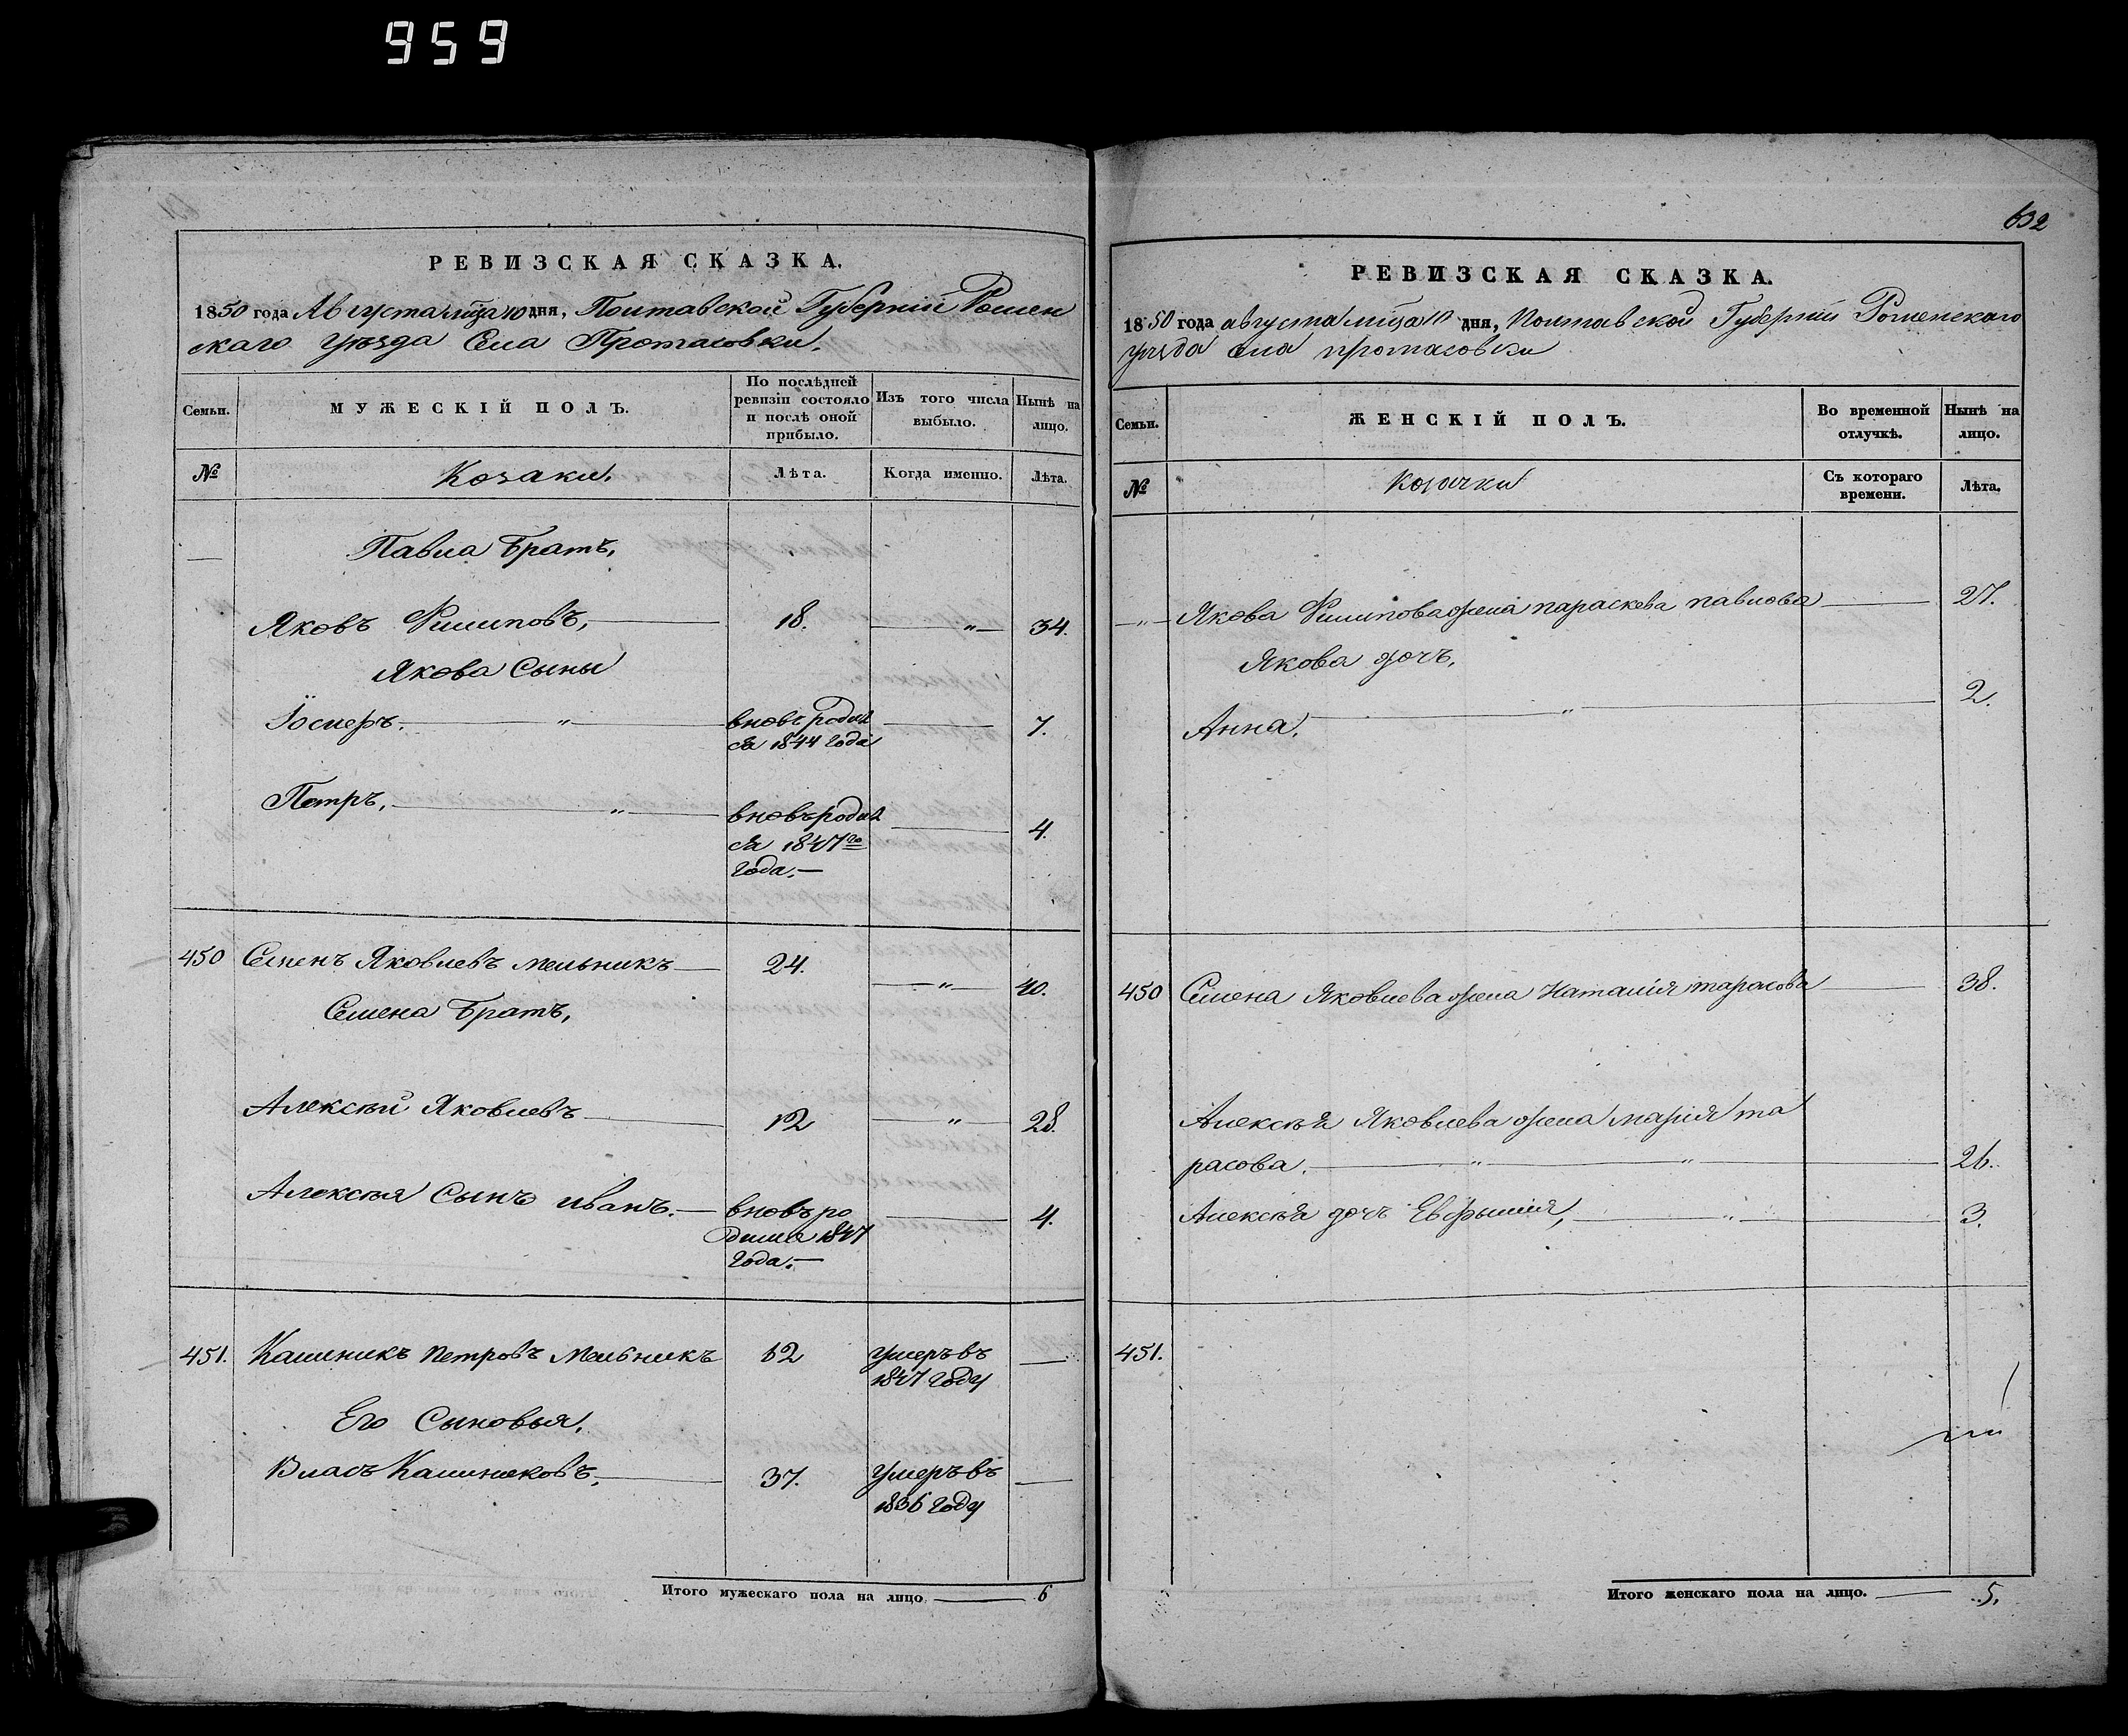 959
РЕВИЗСКАЯ СКАЗКА.
1850 года Августа мца 10 дня, Полтавской Губерніи Ромен
скаго уѣзда Села Протасовки.
Семьи.
МУЖЕСКІЙ ПОЛЪ.
По послѣдней ревизіи состояло и послѣ оной прибыло.
Изъ того числа выбыло.
Нынѣ на лицо.
№
Козаки.
Лѣта.
Когда именно.
Лѣта.
— Павла Братъ,
Яковъ Филиповъ, — 18. — „ — 34.
Якова Сыны
Іосифъ. — „ — вновь родил — 7.
ся 1844 года
Петръ, — „ — вновь родил — 4.
ся 1847го
года. —
450 Семенъ Яковлевъ Мельникъ — 24. — „ — 40.
Семена Братъ,
Алексѣй Яковлевъ — 12 — „ — 28.
Алексѣя Сынъ иванъ. — вновь ро — 4.
дился 1847
года. —
451. Калиникъ Петровъ Мельникъ 62 умеръ въ —
1847 году
Его Сыновья,
Власъ Калиниковъ, — 37. умеръ въ —
1836 году
Итого мужескаго пола на лицо — 6
632
РЕВИЗСКАЯ СКАЗКА.
1850 года августа мица 10 дня, Полтавской Губерніи Роменскаго
уѣзда села протасовки
Семьи.
ЖЕНСКІЙ ПОЛЪ.
Во временной отлучкѣ.
Нынѣ на лицо.
№
Козачки
Съ котораго времени.
Лѣта.
— „ — Якова Филипова жена параскева павлова — 27.
Якова дочь,
Анна. — „ — 2.
450 Семена Яковлева жена Наталія тарасова — 38.
Алексѣя Яковлева жена марія та
расова. — „ — „ — 26.
Алексѣя дочь Евфимія, — „ — 3.
451.
Итого женскаго пола на лицо. — 5.